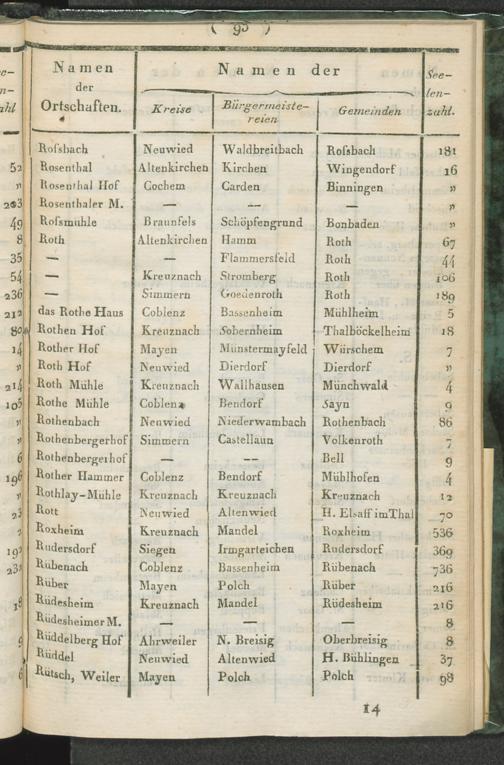 ( 93 )
Namen der Ortschaften. Namen der See-len-zahl.
Kreise Bürgermeiste-reien Gemeinden
Roſsbach Neuwied Waldbreitbach Roſsbach 181
Rosenthal Altenkirchen Kirchen Wingendorf 16
Rosenthal Hof Cochem Carden Binningen „
Rosenthaler M. — — — „
Roſsmühle Braunfels Schöpfengrund Bonbaden „
Roth Altenkirchen Hamm Roth 67
— — Flammersfeld Roth 44
— Kreuznach Stromberg Roth 106
— Simmern Goedenroth Roth 189
das Rothe Haus Coblenz Bassenheim Mühlheim 5
Rothen Hof Kreuznach Sobernheim Thalböckelheim 18
Rother Hof Mayen Münstermayfeld Würschem 7
Roth Hof Neuwied Dierdorf Dierdorf „
Roth Mühle Kreuznach Wallhausen Münchwald 4
Rothe Mühle Coblenz Bendorf Sayn 9
Rothenbach Neuwied Niederwambach Rothenbach 86
Rothenbergerhof Simmern Castellaun Volkenroth 7
Rothenbergerhof — — Bell 9
Rother Hammer Coblenz Bendorf Mühlhofen 4
Rothlay-Mühle Kreuznach Kreuznach Kreuznach 12
Rott Neuwied Altenwied H. Elsaff im Thal 70
Roxheim Kreuznach Mandel Roxheim 536
Rudersdorf Siegen Irmgarteichen Rudersdorf 369
Rübenach Coblenz Bassenheim Rübenach 736
Rüber Mayen Polch Rüber 216
Rüdesheim Kreuznach Mandel Rüdesheim 216
Rüdesheimer M. — — — 8
Rüddelberg Hof Ahrweiler N. Breisig Oberbreisig 8
Rüddel Neuwied Altenwied H. Bühlingen 37
Rütsch, Weiler Mayen Polch Polch 98
14